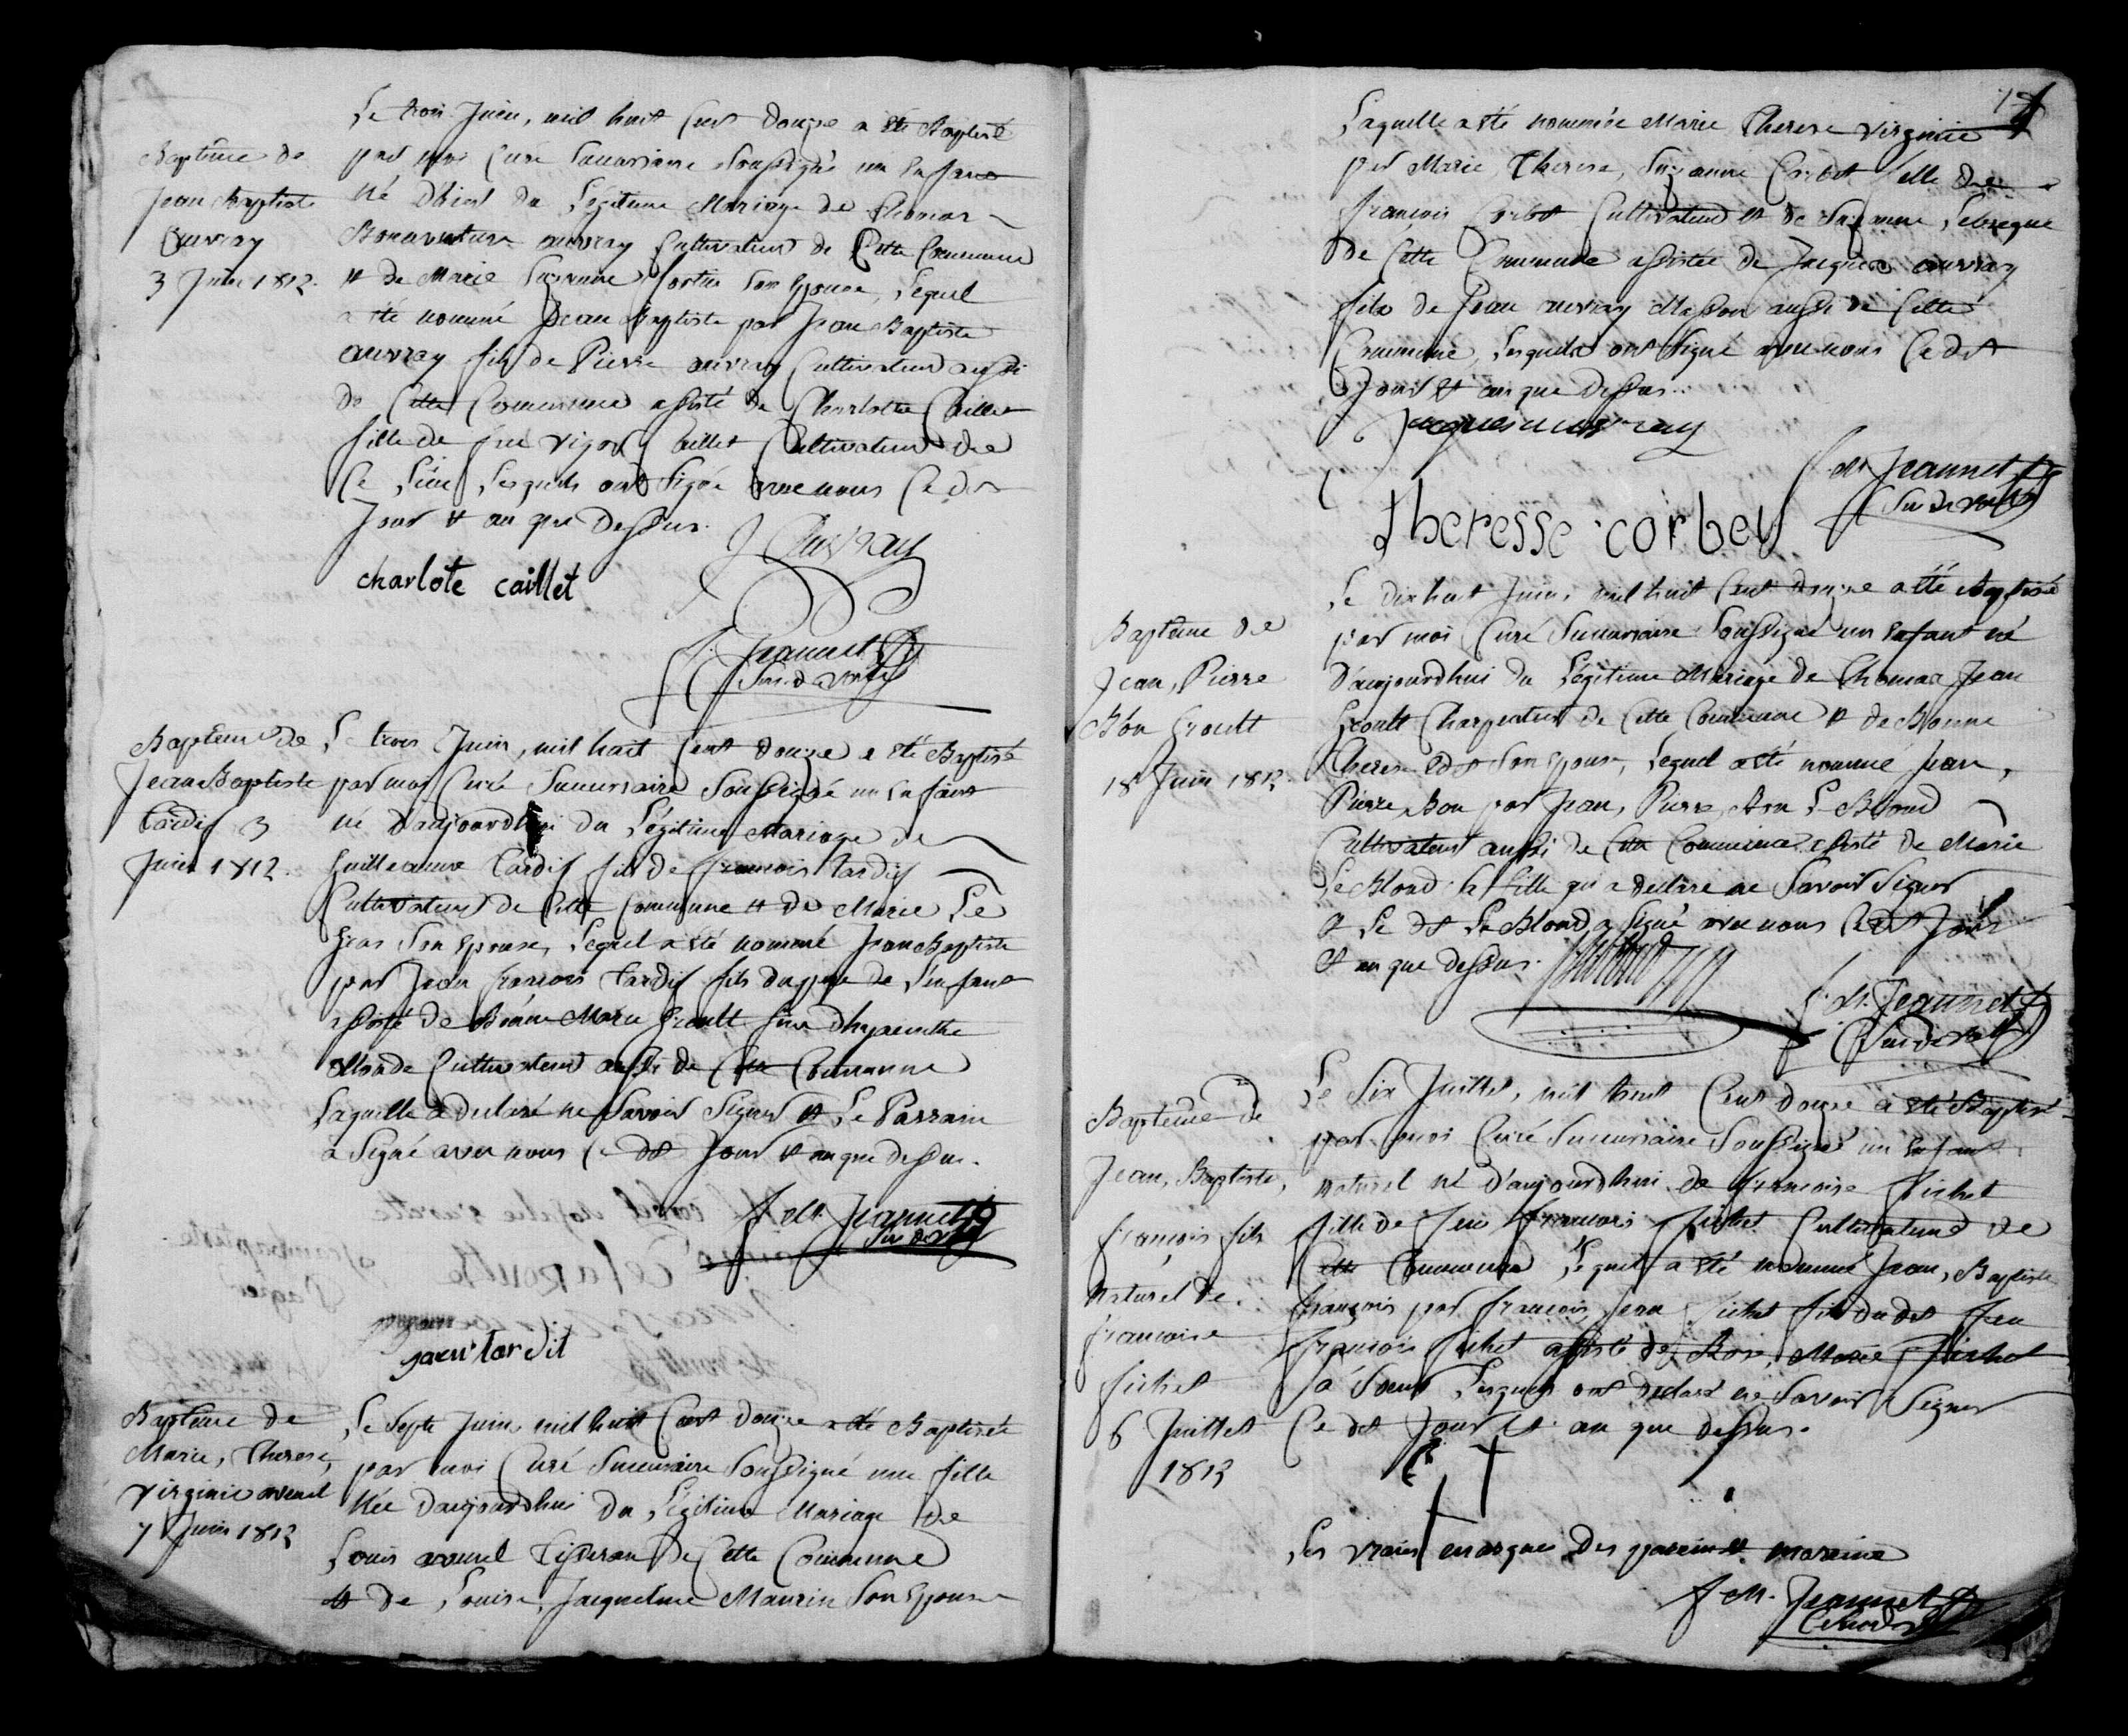 Baptême de
Jean Baptiste
auvray
3 Juin 1812.
Le trois Juin, mil huit Cent douze a été Baptisé
par moi Curé Succursaire Soussigné un Enfant
né D'hier du Légitime Mariage de Thomas
Bonaventure auvray Cultivateur de Cette Commune
et de Marie Suzanne Son Epouse, Lequel
a été nommé Jean Baptiste par Jean Baptiste
auvray fils de Pierre auvray Cultivateur aussi
de Cette Commune assisté de Charlotte Caillet
fille de feu Vigor Caillet Cultivateur de
Ce Lieu Lesquels ont Signé avec nous Ce dt
Jour et an que Dessus.
J Auvray
charlote caillet
f. Jeannet
Baptême de
Jean Baptiste
tardif 3
Juin 1812.
Le trois Juin, mil huit Cent douze a été Baptisé
par moi Curé Succursaire Soussigné un Enfant
né D'aujourdhui du Légitime Mariage de
Guillaume tardif fils de francois tardif
Cultivateur de Cette Commune et de Marie Le
gras Son Epouse, Lequel a été nommé Jean Baptiste
par Jean francois tardif fils du pere de L'enfant
assisté de Marie Groult dhyacinthe
Cultivateur aussi de Cette Commune
Laquelle a declaré ne Savoir Signer et Le Parrain
a Signé avec nous Ce dt Jour et an que dessus.
f M. Jeannet
jaen tardit
Baptême de
Marie, Therese,
Virginie avenel
7 Juin 1812
Le Sept Juin mil huit Cent Douze a été Baptisée
par moi Curé Succursaire Soussigné une fille
Née D'aujourdhui du Légitime Mariage de
Louis avenel Tisseran de Cette Commune
et de Louise, Jacqueline Maurin Son Epouse
Laquelle a été nommée Marie Therese Virginie
par Marie, Therese, Suzanne Corbet fille de
francois Corbet Cultivateur et de Suzanne
de Cette Commune assistée de Jacques auvray
fils de Jean auvray Masson aussi de Cette
Commune, Lesquels ont Signé avec nous Ce dt
Jour et an que Dessus.
Jacques auvray
f M Jeannet
theresse corbey
Baptême de
Jean, Pierre
Bon Groult
18 Juin 1812.
Le dix huit Juin, mil huit Cent Douze a été Baptisé
par moi Curé Succursaire Soussigné un Enfant né
D'aujourdhui du Légitime Mariage de Thomas Jean
Groult Charpentier de Cette Commune et de Bonne
Therese Son Epouse, Lequel a été nommé Jean,
Pierre, Bon par Jean, Pierre, Bon Le Blond
Cultivateur aussi de Cette Commune assisté de Marie
Le Blond Sa fille qui a declaré ne Savoir Signer
et Le dt Le Blond a Signé avec nous Ce dt Jour
et an que dessus.
f. M. Jeannet
Baptême de
Jean, Baptiste,
francois fils
Naturel de
francoise
fichet
6 Juillet
1812
Le Six Juillet, mil huit Cent Douze a été Baptisé
par moi Curé Succursaire Soussigné un Enfant
naturel né D'aujourdhui de francoise fichet
fille de feu francois fichet Cultivateur de
Cette Commune Lequel a été nommé Jean, Baptiste
francois par francois, Jean fichet fils du dt feu
francois fichet assisté de Rose, Marie fichet
Sa Soeur Lesquels ont declaré ne Savoir Signer
Ce dt Jour et an que dessus.
Les vraies marques des parein et mareine
f M. Jeannet